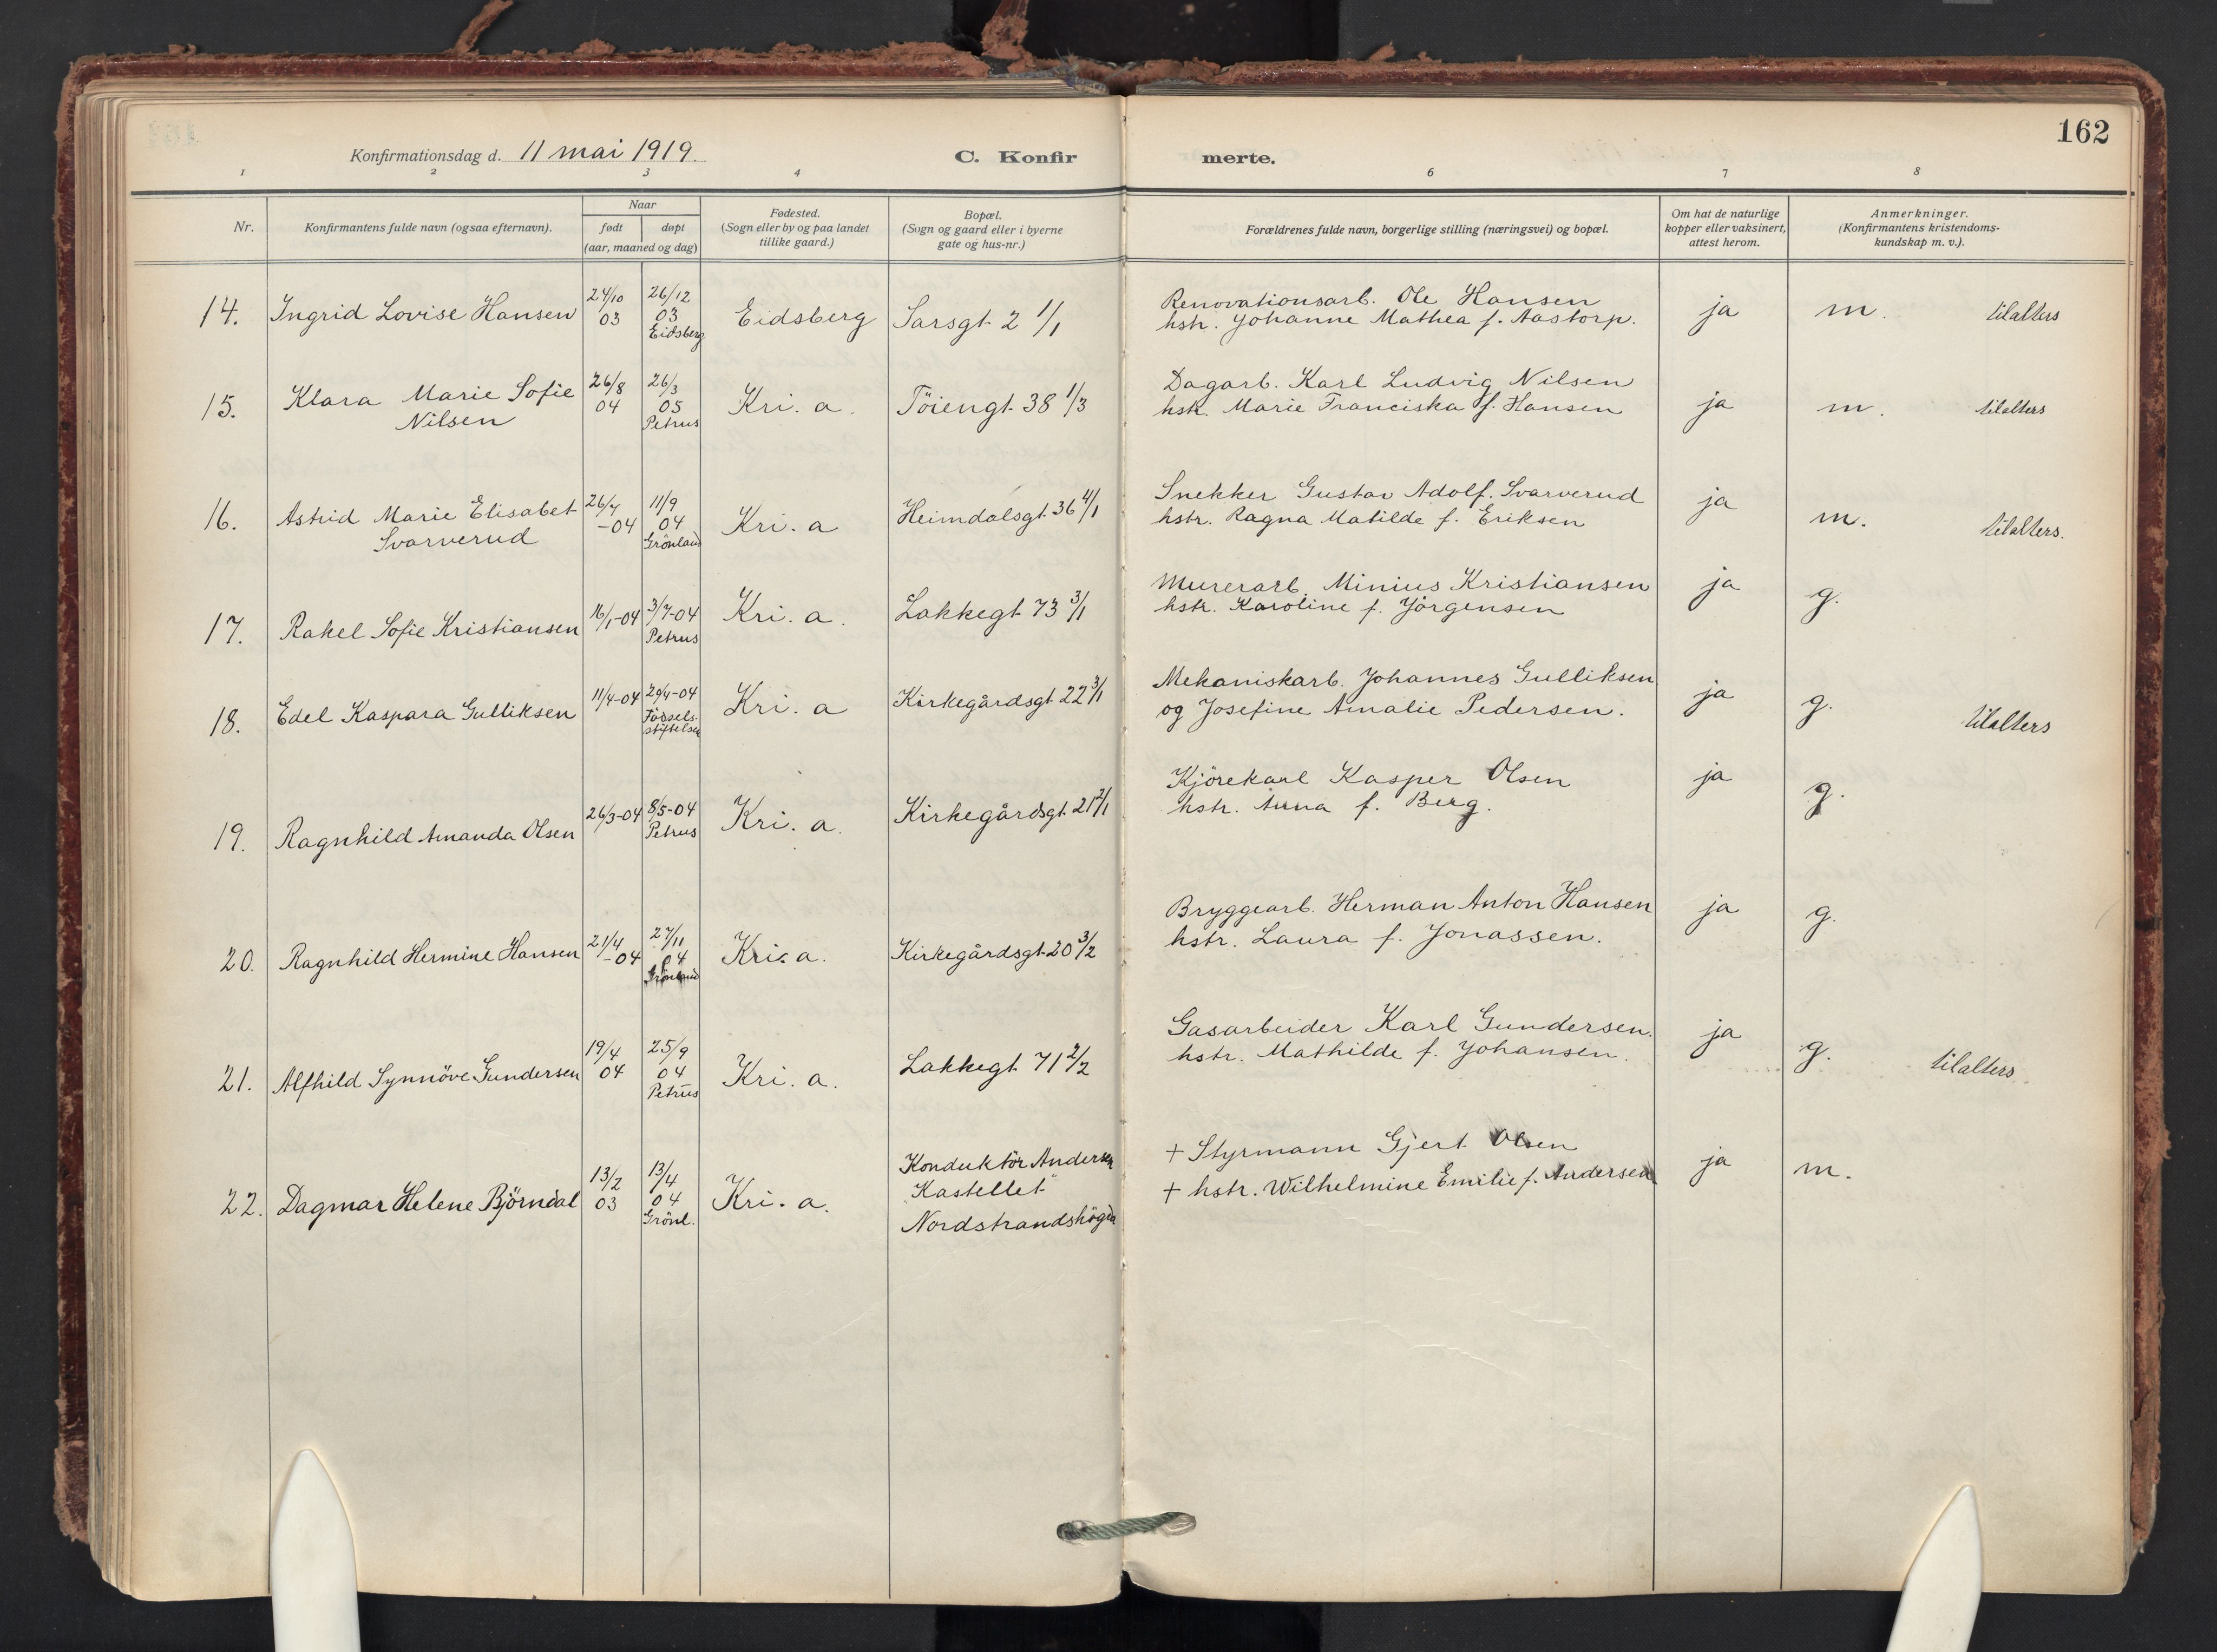 162
Konfirmationsdag d. 11 mai 1919.
C. Konfir merte.
1 2 3 4 6 7 8
Nr.
Konfirmantens fulde navn (ogsaa efternavn).
Naar
født døpt
(aar, maaned og dag)
Fødested.
(Sogn eller by og paa landet
tillike gaard.)
Bopæl.
(Sogn og gaard eller i byerne
gate og hus-nr.)
Forældrenes fulde navn, borgerlige stilling (næringsvei) og bopæl.
Om hat de naturlige
kopper eller vaksinert,
attest herom.
Anmerkninger.
(Konfirmantens kristendoms-
kundskap m. v.).
14. Ingrid Lovise Hansen
24/10
03
26/12
03
Eidsberg
Eidsberg
Sarsgt. 2 1/1
Renovationsarb. Ole Hansen
hstr. Johanne Mathea f. Aastorp.
ja
m.
tilalters
15. Klara Marie Sofie
Nilsen
26/8
04
26/3
05
Petrus
Kri. a.
Töiengt. 38 1/3
Dagarb. Karl Ludvig Nilsen
hstr. Marie Franciska f. Hansen
ja
m.
tilalters
16. Astrid Marie Elisabet
Svarverud
26/4
-04
11/9
04
Grönland
Kri. a
Heimdalsgt. 36 4/1
Snekker Gustav Adolf. Svarverud
hstr. Ragna Matilde f. Eriksen
ja
m.
tilalters.
17. Rakel Sofie Kristiansen
16/1-04
3/7-04
Petrus
Kri. a.
Lakkegt 73 3/1
Murerarb. Minius Kristiansen
hstr. Karoline f. Jörgensen
ja
g.
18. Edel Kaspara Gulliksen
11/4-04
29/4-04
Födsels-
stiftelsen
Kri. a
Kirkegårdsgt. 22 3/1
Mekaniskarb. Johannes Gulliksen
og Josefine Amalie Pedersen.
ja
g.
tilalters
19. Ragnhild Amanda Olsen
26/3-04
8/5-04
Petrus
Kri. a.
Kirkegårdsgt. 21 2/1
Kjörekarl Kasper Olsen
hstr. Anna f. Berg.
ja
g.
20. Ragnhild Hermine Hansen
21/4
-04
27/11
04
Grönland
Kri. a.
Kirkegårdsgt. 20 3/2
Bryggearb. Herman Anton Hansen
hstr. Laura f. Jonassen.
ja
g.
21. Alfhild Synnöve Gundersen
19/4
04
25/9
04
Petrus
Kri. a.
Lakkegt. 71 2/2
Gasarbeider Karl Gundersen.
hstr. Mathilde f. Johansen.
ja
g.
tilalters
22. Dagmar Helene Björndal
13/2
03
13/4
04
Grönl.
Kri. a.
Konduktör Andersen
"Kastellet"
Nordstrandshögda
+ Styrmann Gjert Olsen
+ hstr. Wilhelmine Emilie f. Andersen
ja
m.